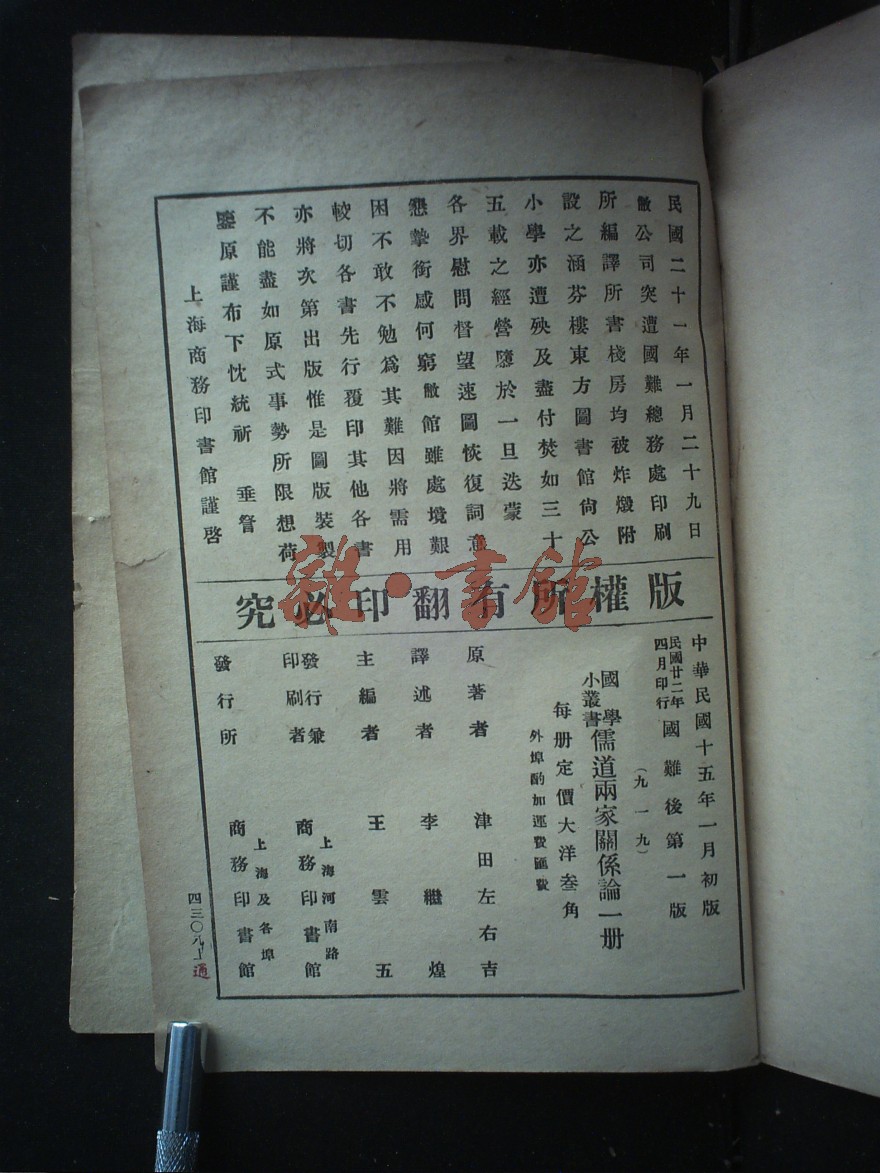 民國二十一年一月二十九日
敝公司突遭國難總務處印刷
所編譯所書棧房均被炸燬附
設之涵芬樓東方圖書館尙公
小學亦遭殃及盡付焚如三十
五載之經營隳於一旦迭蒙
各界慰問督望速圖恢復詞意
懇摯銜感何窮敝館雖處境艱
困不敢不勉爲其難因將需用
較切各書先行覆印其他各書
亦將次第出版惟是圖版裝製
不能盡如原式事勢所限想荷
鑒原謹布下忱統祈 垂詧
上海商務印書館謹啓
版權所有翻印必究
雜·書館
中華民國十五年一月初版
民國廿二年四月印行 國難後第一版
(九一九)
國學小叢書 儒道兩家關係論一册
每册定價大洋叁角
外埠酌加運費匯費
原著者 津田左右吉
譯述者 李繼煌
主編者 王雲五
發行兼印刷者 上海河南路 商務印書館
發行所 上海及各埠 商務印書館
四三〇九上 通